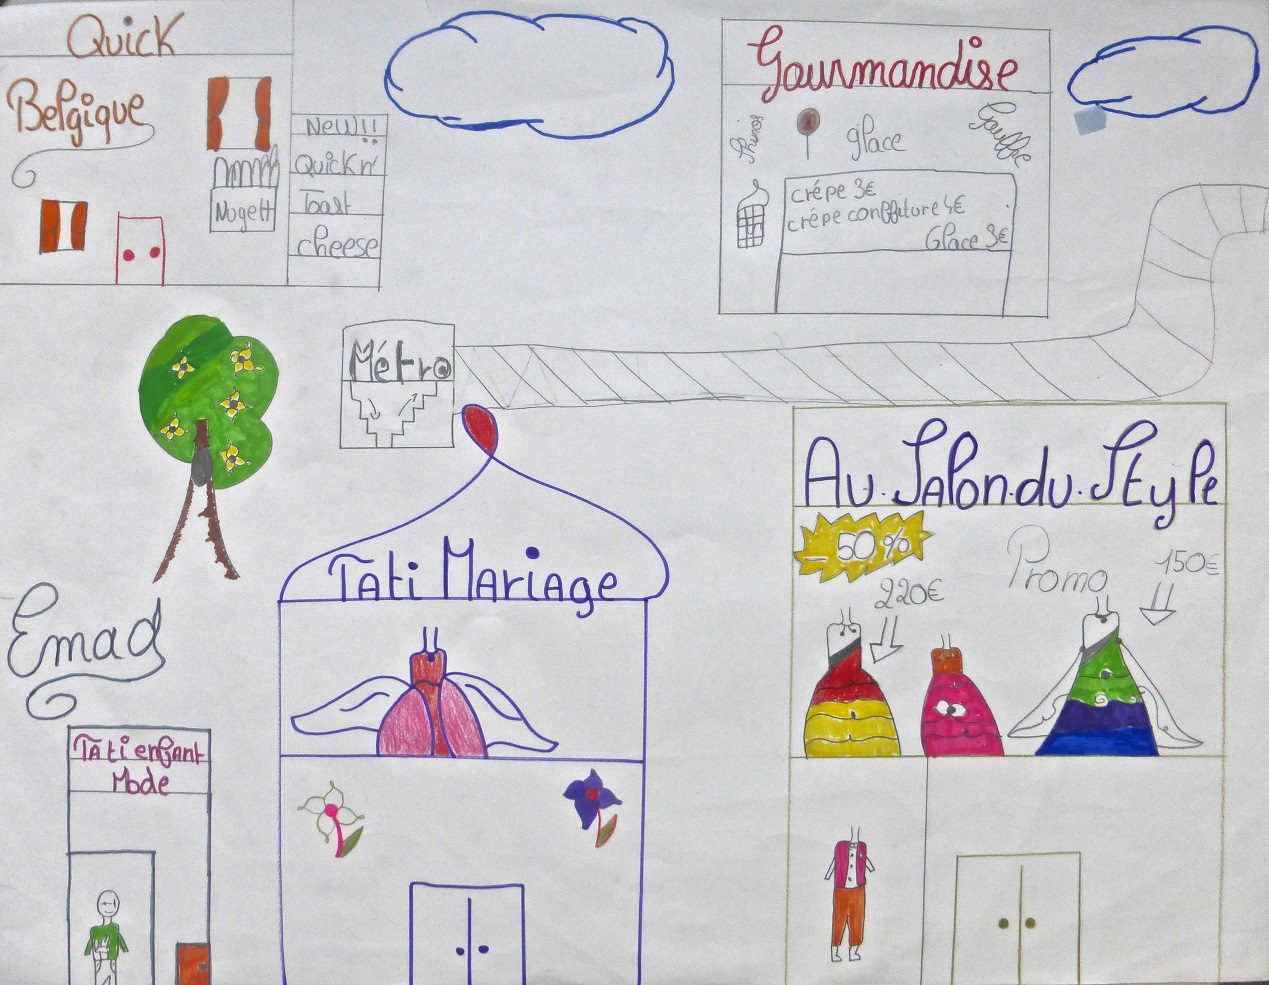 Quick
Belgique
Nugett
New!!
Quick n'
Toast
cheese
Gourmandise
glace
Gouffre
crépe 3€
crépe conffiture 4€
Glace 3€
Métro
Au.Salon.du.Style
- 50 %
220€
Promo
150€
Tati Mariage
Emad
Tati enfant
Mode